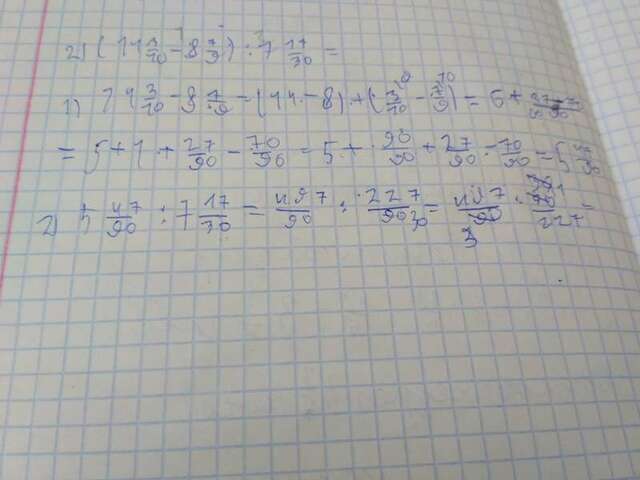 2) (14 3/10 - 8 7/9) : 7 17/30 =
1) 14 3/10 - 8 7/9 = (14 - 8) + (3/10 - 7/9) = 6 +
= 5 + 1 + 27/90 - 70/90 = 5 + 90/90 + 27/90 - 70/90 = 5 47/90
2) 5 47/90 : 7 17/30 = 497/90 : 227/30 = 497/90 · 30/227 =